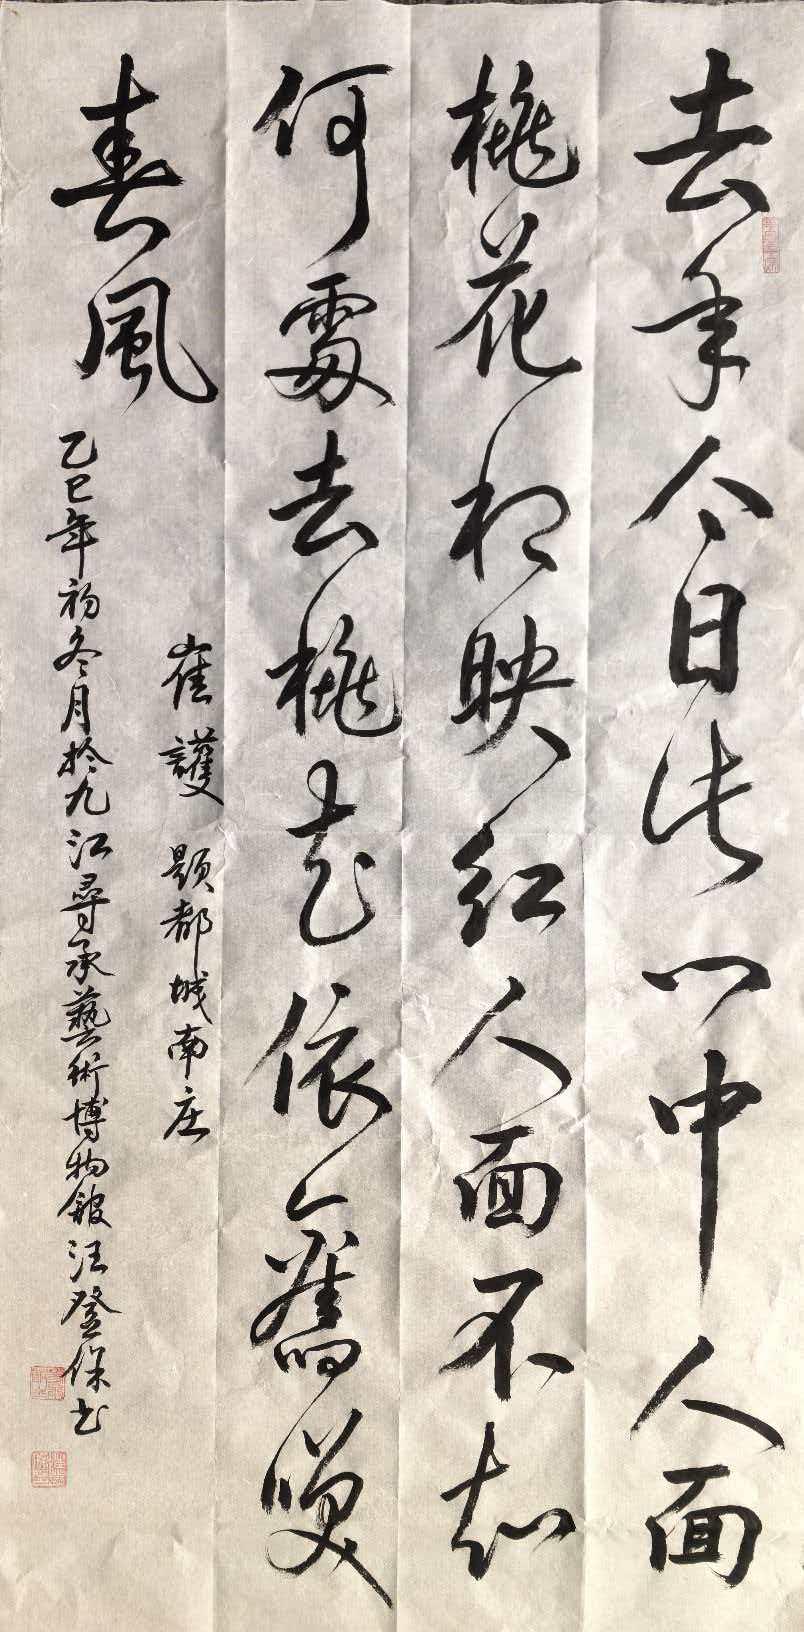 去年今日此门中人面
桃花相映红人面不知
何處去桃花依舊笑
春風
崔護 题都城南庄
乙巳年初冬月於九江尋承藝術博物館汪登保书